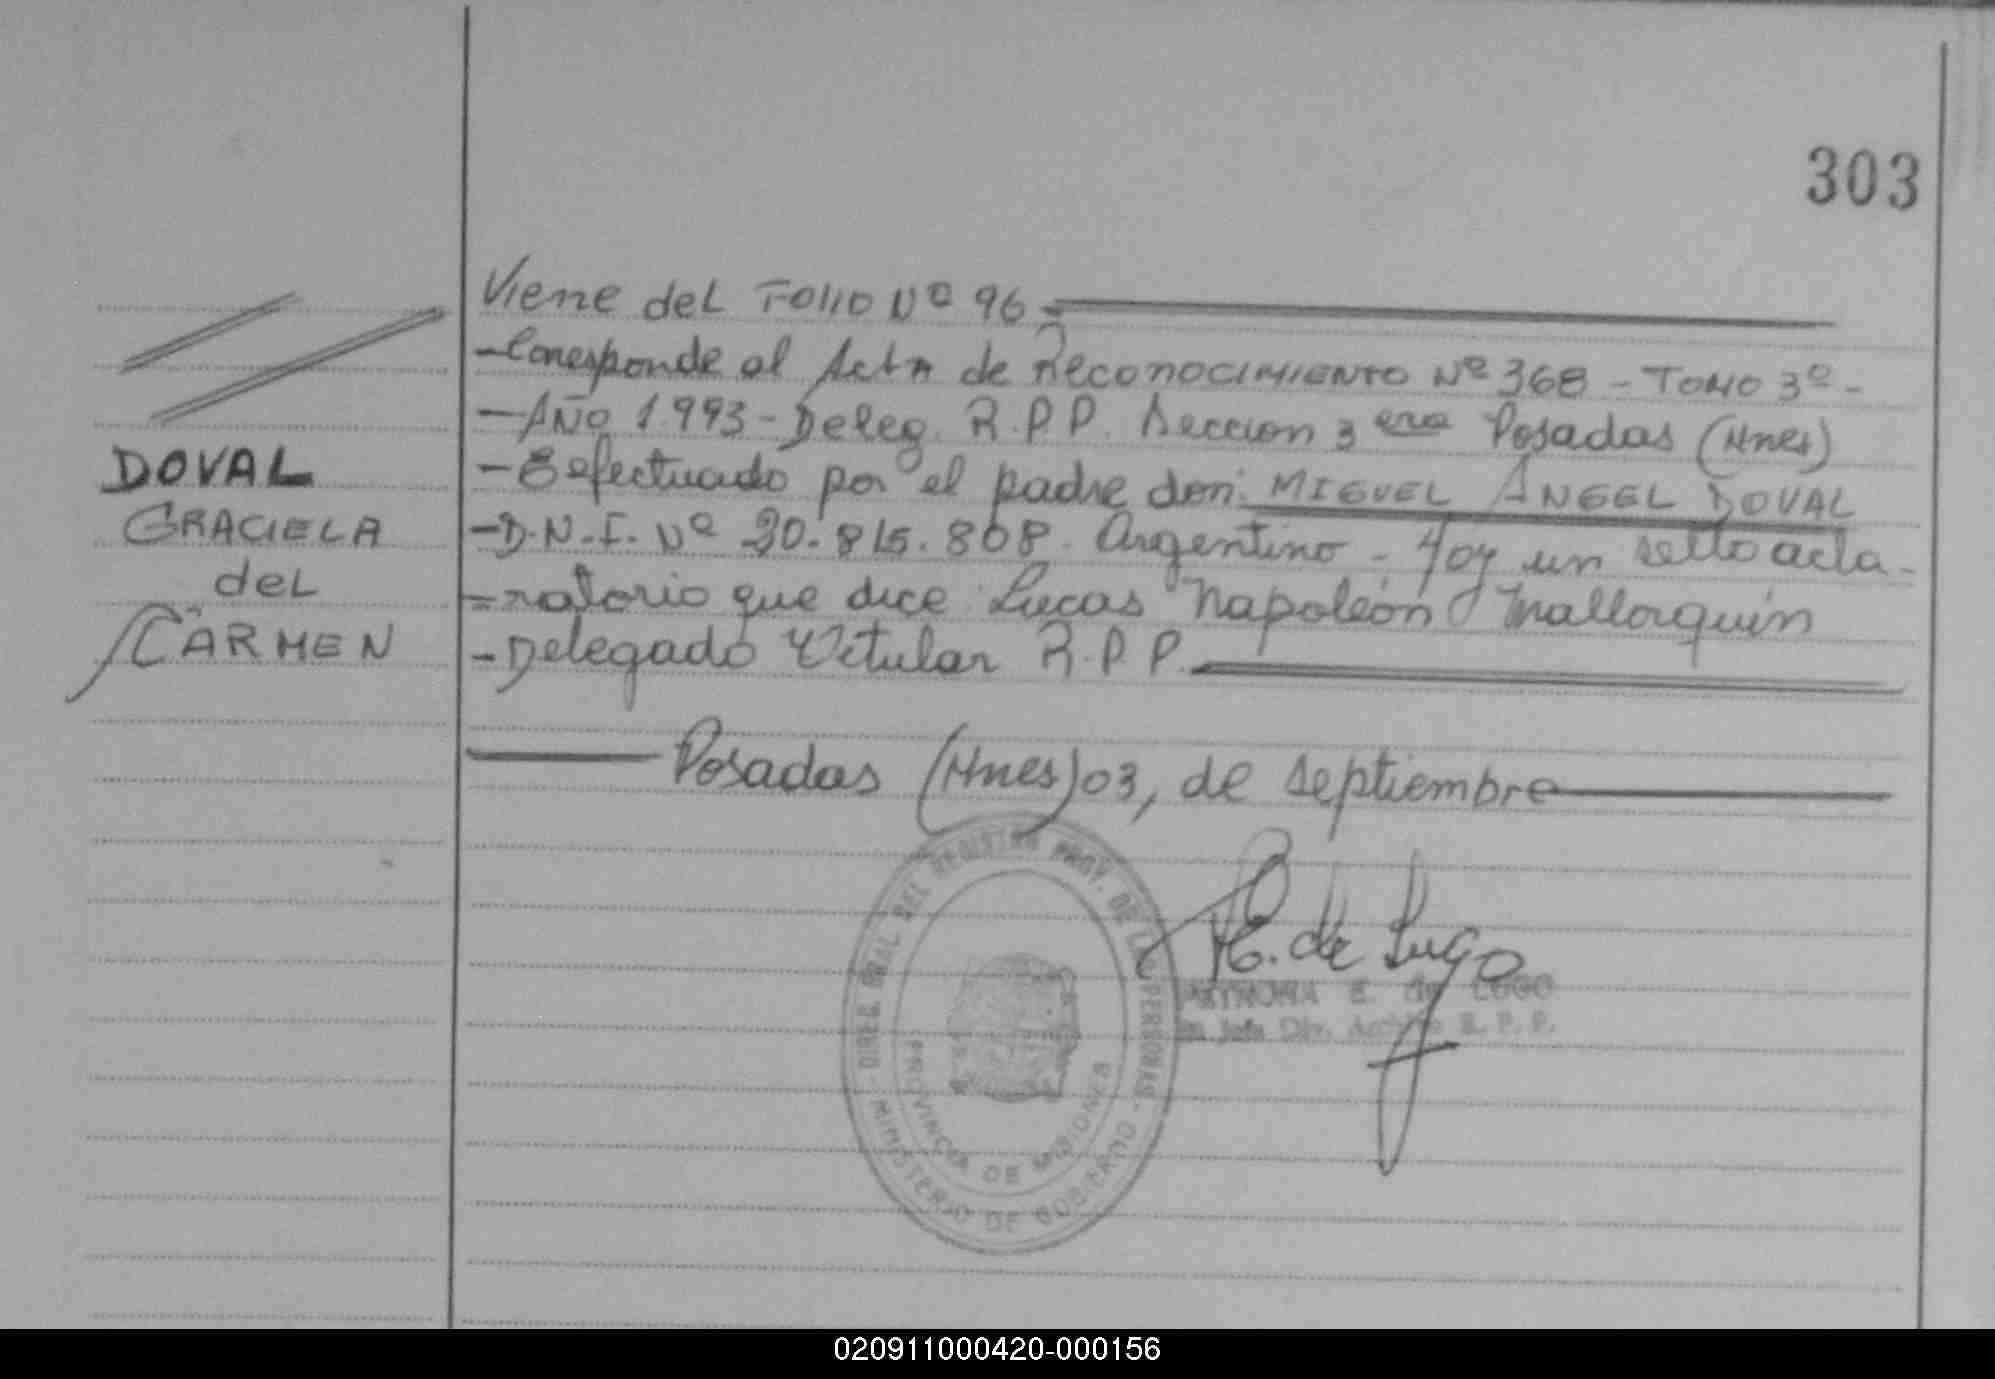 303
Viene del Folio Nº 96
DOVAL
GRACIELA
del
CARMEN
-Corresponde al Acta de Reconocimiento Nº 368 - Tomo 3º -
- Año 1.993 - Deleg. R.P.P. Seccion 3 era Posadas (Mnes)
- Efectuado por el padre don: MIGUEL ANGEL DOVAL
- D.N.I. Nº 20.815.808. Argentino - Hay un sello acla-
-ratorio que dice: Lucas Napoleón Mallorquin
- Delegado Titular R.P.P.
Posadas (Mnes) 03, de septiembre
DIREC. GRAL DEL REGISTRO PROV. DE LAS PERSONAS
MINISTERIO DE GOBIERNO
PROVINCIA DE MISIONES
de Lugo
E. de LUGO
Jefa Div. Archivo R. P. P.
020911000420-000156